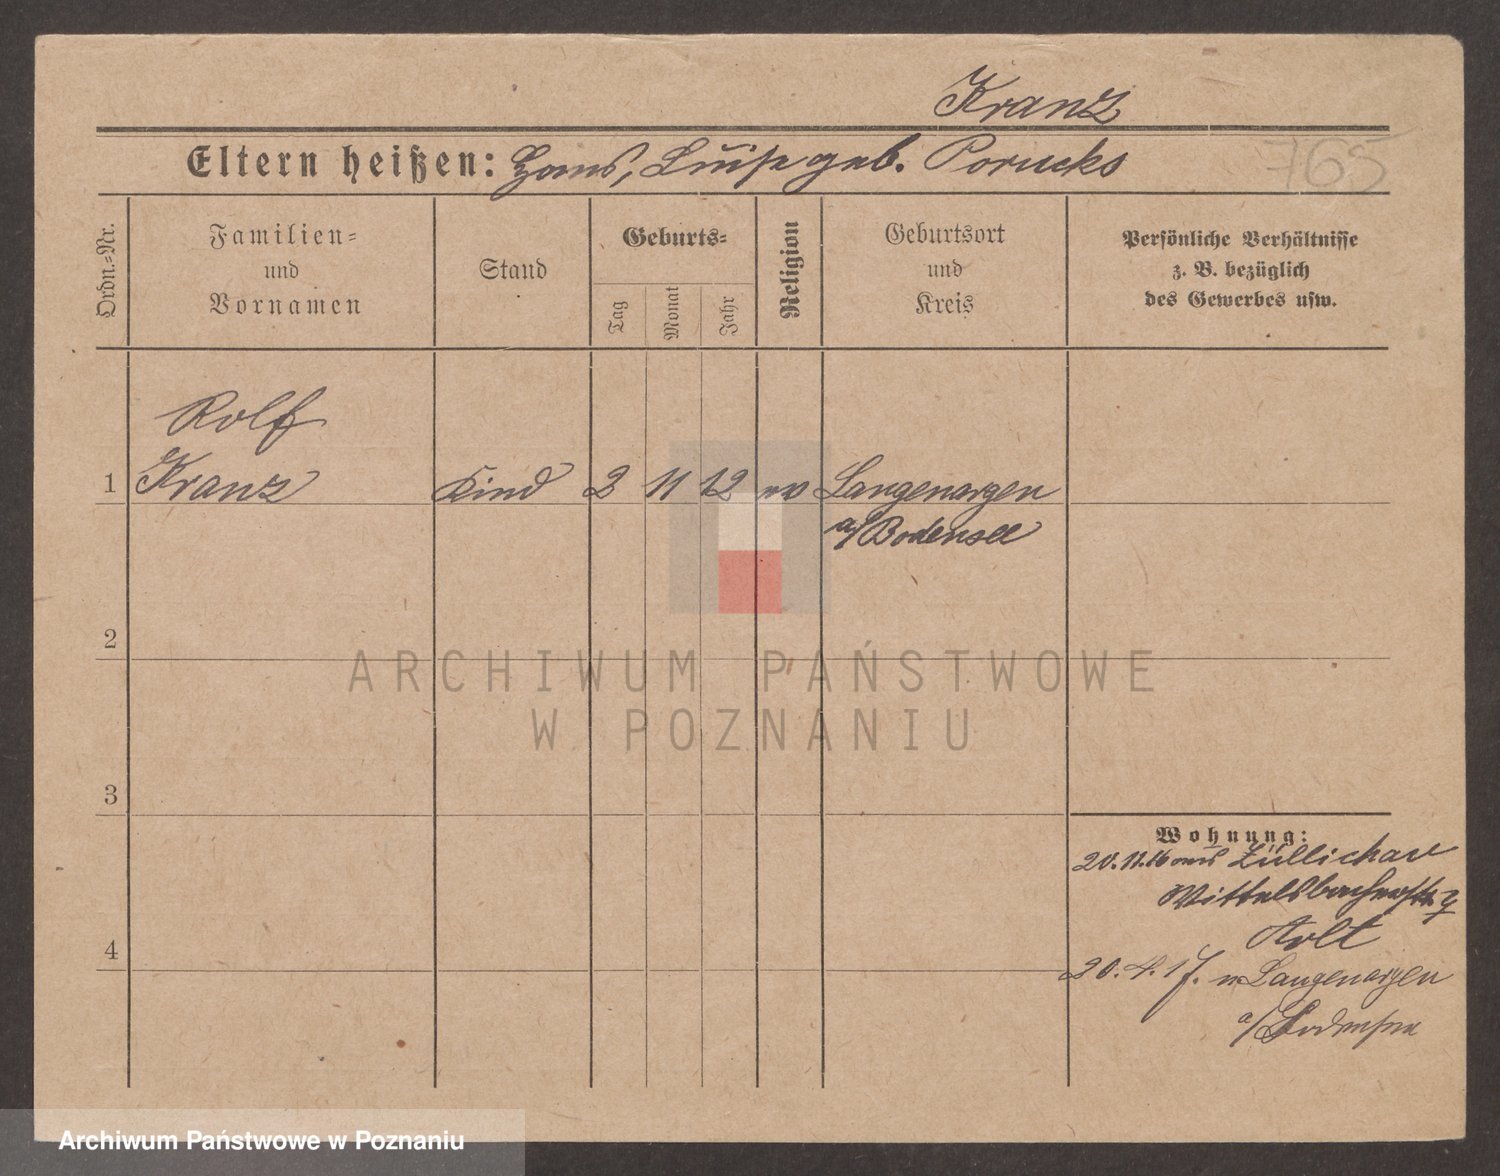 Kranz
Eltern heißen: Hans, Luise geb. Porucks
765
Ordn.-Nr.
Familien-
und
Vornamen
Stand
Geburts-
Tag
Monat
Jahr
Religion
Geburtsort
und
Kreis
Persönliche Verhältnisse
z. B. bezüglich
des Gewerbes usw.
Rolf
1 Kranz Kind 2 11 12 ev Langenargen
a/Bodensee
2
ARCHIWUM PAŃSTWOWE
W POZNANIU
3
Wohnung:
20.11.16 aus Züllichau
Wittelsbacherstr. 7
4
20.4.17. n Langenargen
a/Bodensee
Archiwum Państwowe w Poznaniu